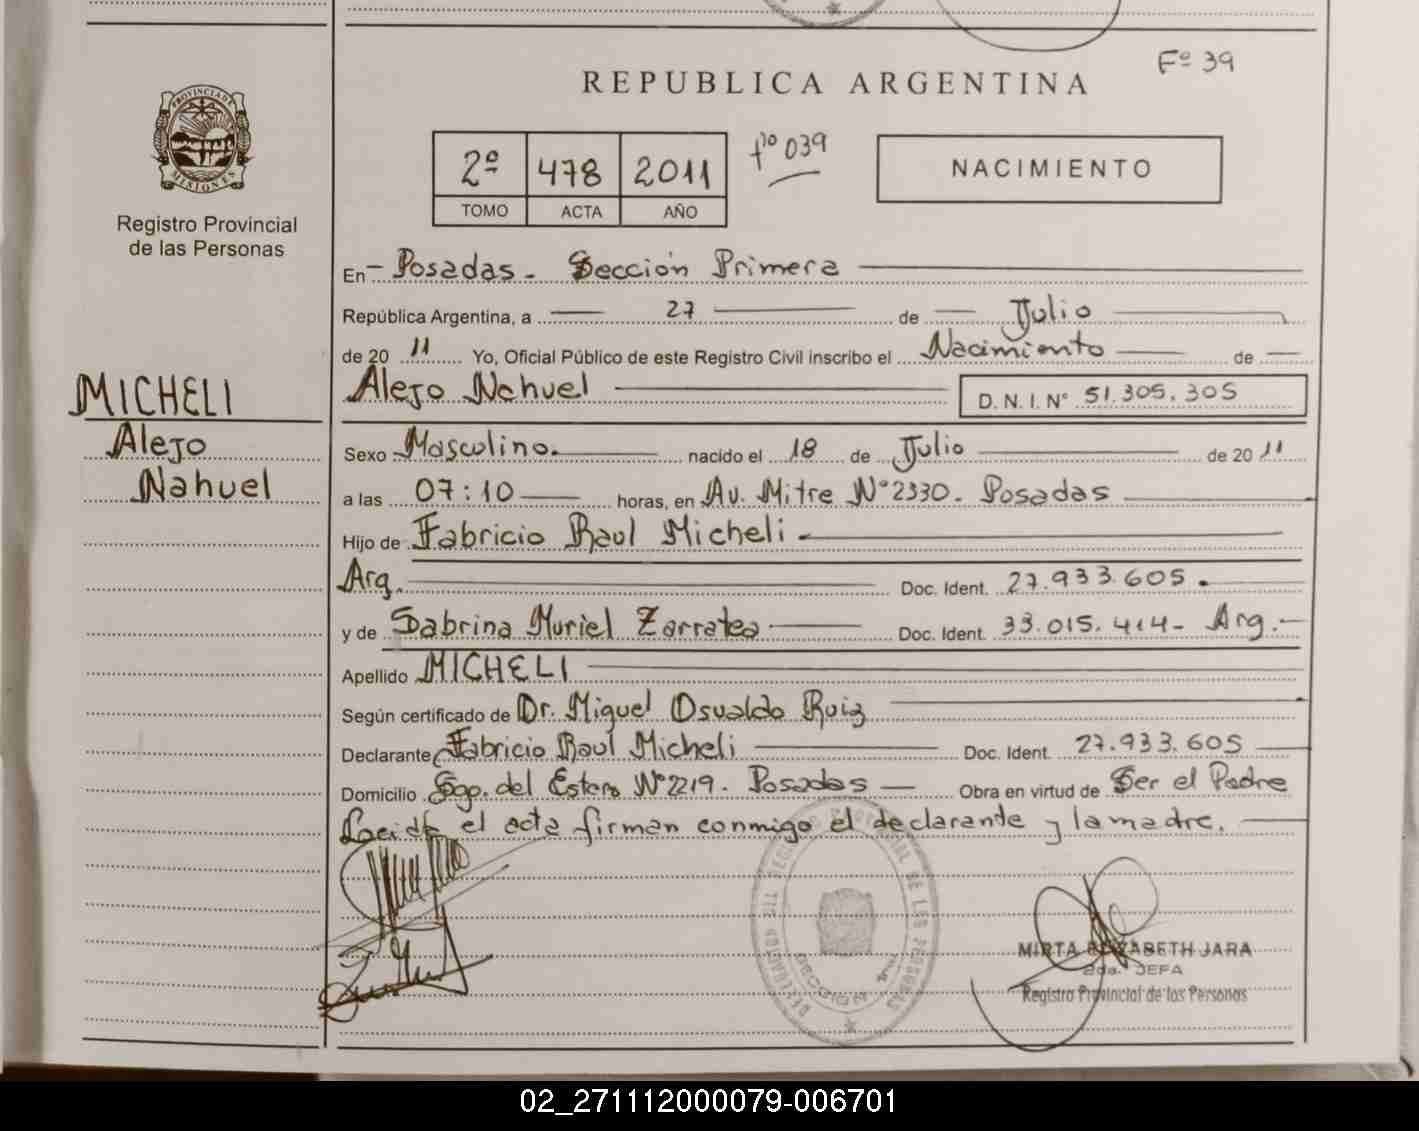 Fº 39
REPUBLICA ARGENTINA
PROVINCIA DE
MISIONES
Registro Provincial
de las Personas
2º 478 2011 fº 039
TOMO ACTA AÑO
NACIMIENTO
En - Posadas - Sección Primera
República Argentina, a 27 de Julio
de 20 11 Yo, Oficial Público de este Registro Civil inscribo el Nacimiento de
Alejo Nahuel D. N. I. Nº 51.305.305
MICHELI
Alejo
Nahuel
Sexo Masculino. nacido el 18 de Julio de 20 11
a las 07:10 horas, en Av. Mitre Nº 2330. Posadas
Hijo de Fabricio Raul Micheli
Arg. Doc. Ident. 27.933.605.
y de Sabrina Muriel Zarratea Doc. Ident. 33.015.414- Arg.
Apellido MICHELI
Según certificado de Dr. Miguel Osvaldo Ruiz
Declarante Fabricio Raul Micheli Doc. Ident. 27.933.605
Domicilio Sgo. del Estero Nº 2219. Posadas Obra en virtud de Ser el Padre
Leida el acta firman conmigo el declarante y la madre.
DELEGACION DEL REGISTRO PROVINCIAL DE LAS PERSONAS
SECCION 1ra
MIRTA ELIZABETH JARA
2da. JEFA
Registro Provincial de las Personas
02_271112000079-006701